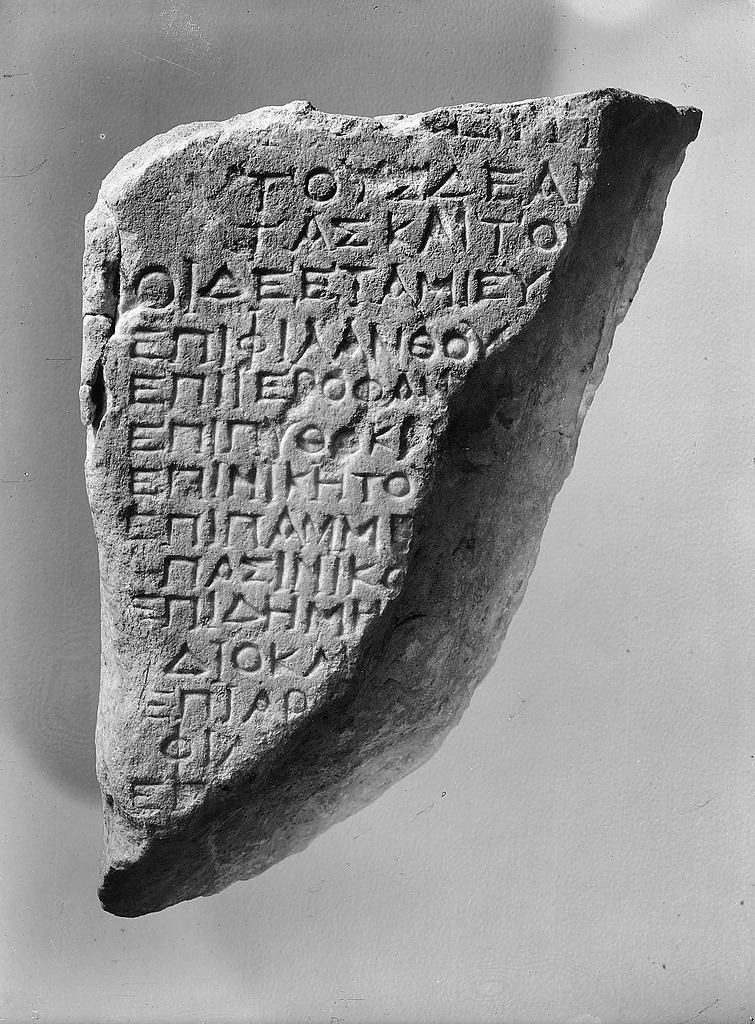 ΤΟΥΣΔΕΑΠ
ΤΑΣΚΑΙΤΟΥ
ΟΙΔΕΕΤΑΜΙΕΥ
ΕΠΙΦΙΛΑΝΘΟΥ
ΕΠΙΙΕΡΟΦΑΝ
ΕΠΙΠΥΘΟΚΡ
ΕΠΙΝΙΚΗΤΟ
ΕΠΙΠΑΜΜΕ
ΠΑΣΙΝΙΚΟ
ΕΠΙΔΗΜΗ
ΔΙΟΚΛΗ
ΕΠΙΑΡ
ΟΙΝ
ΕΠ